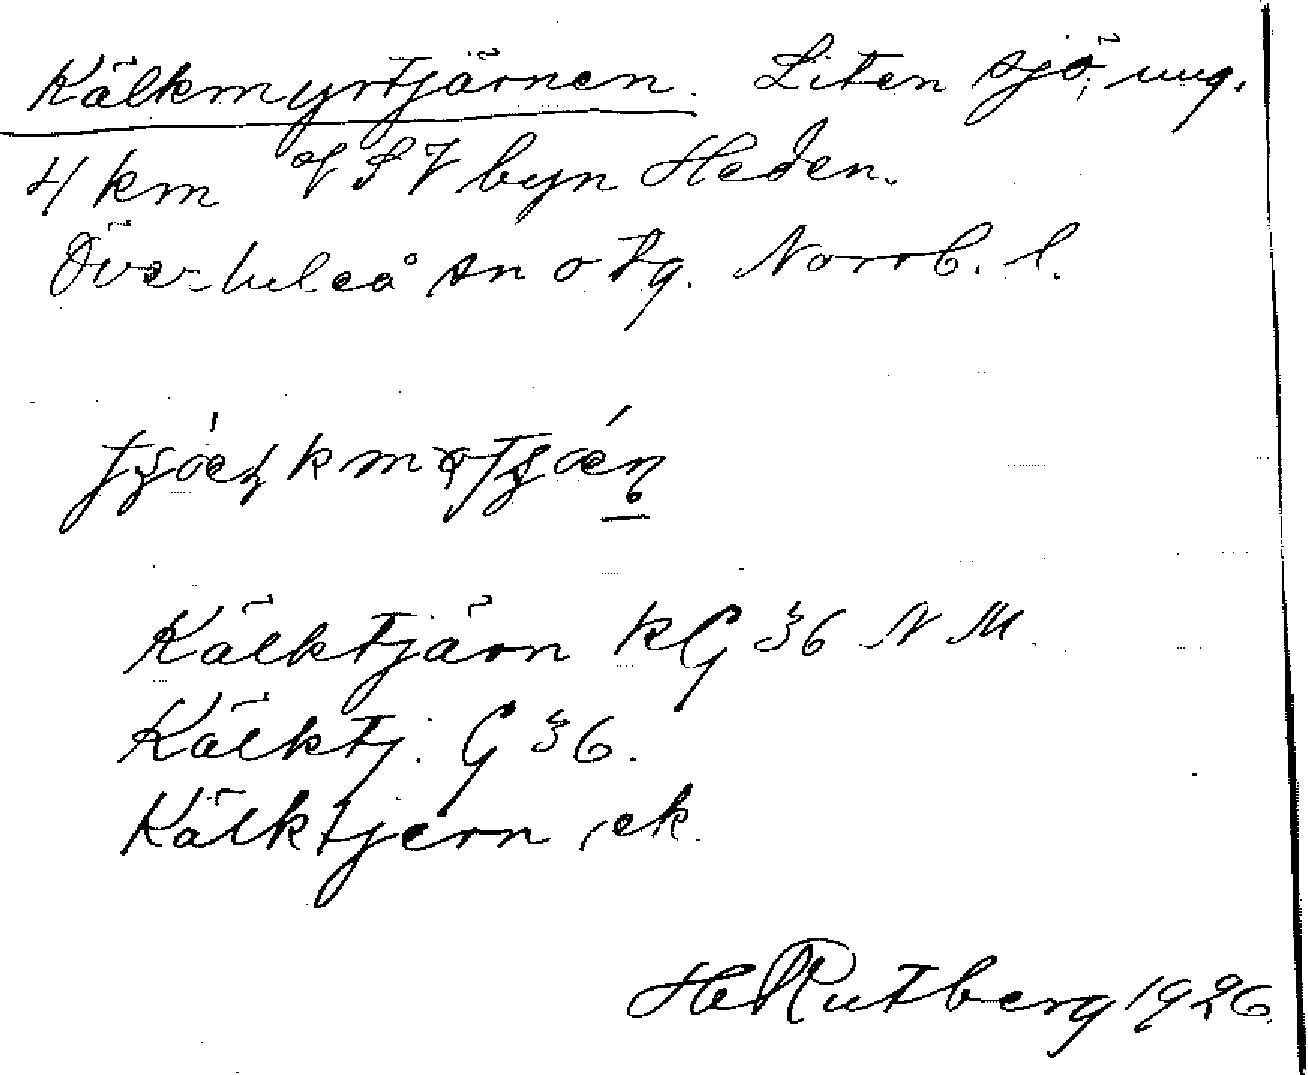 Kälkmyrtjärnen. Liten sjö, ung.
4 km VSV byn Heden.
Överluleå sn o tg. Norrb. l.
Kälktjärn kG 36 NM.
Kälktj. G 36.
Kälktjern, ek.
H Rutberg 1926